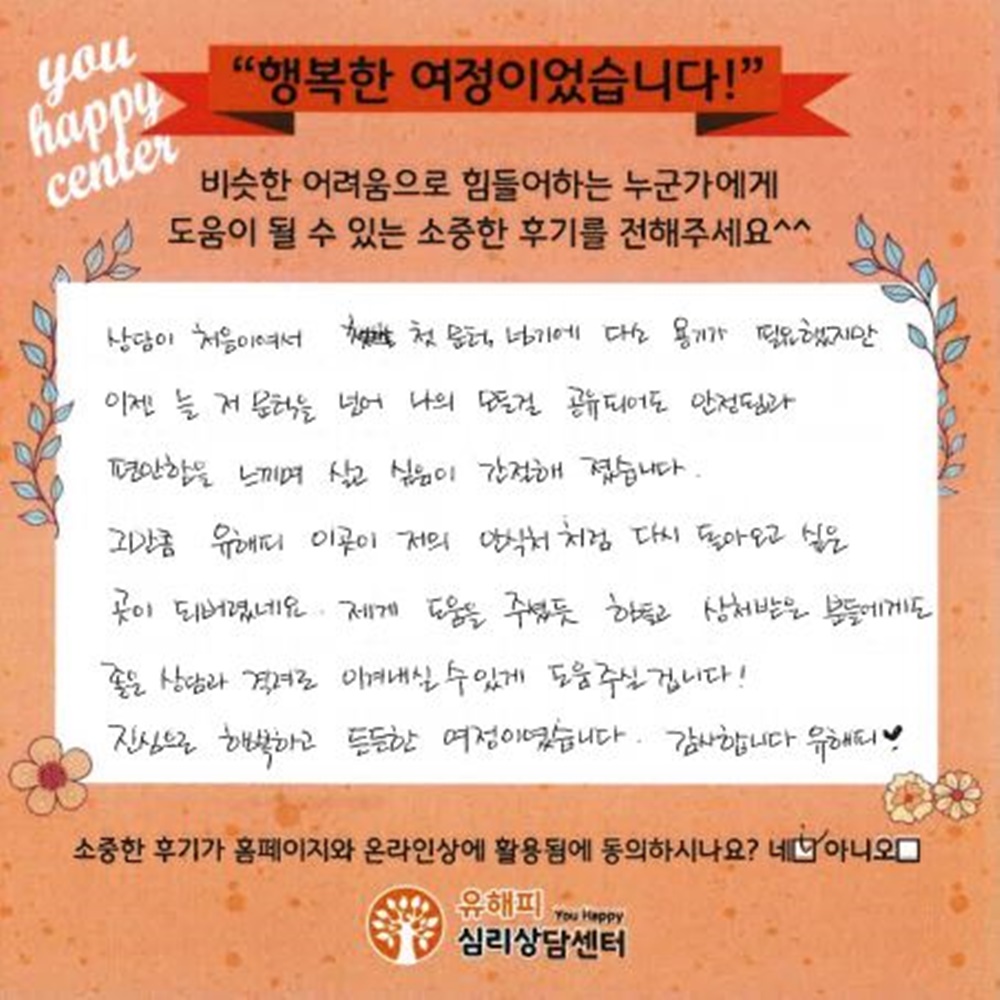 you
happy
center
“행복한 여정이었습니다!”
비슷한 어려움으로 힘들어하는 누군가에게
도움이 될 수 있는 소중한 후기를 전해주세요^^
상담이 처음이여서 첫 문턱 넘기에 다소 용기가 필요했지만
이젠 늘 저 문턱을 넘어 나의 모든걸 공유되어도 안정됨과
편안함을 느끼며 살고 싶음이 간절해 졌습니다.
그만큼 유해피 이곳이 저의 안식처 처럼 다시 돌아오고 싶은
곳이 되버렸네요. 제게 도움을 주셨듯 힘들고 상처받은 분들에게도
좋은 상담과 격려로 이겨내실 수 있게 도움주실겁니다!
진심으로 행복하고 든든한 여정이였습니다. 감사합니다 유해피♥
소중한 후기가 홈페이지와 온라인상에 활용됨에 동의하시나요? 네☑ 아니오☐
유해피 You Happy
심리상담센터